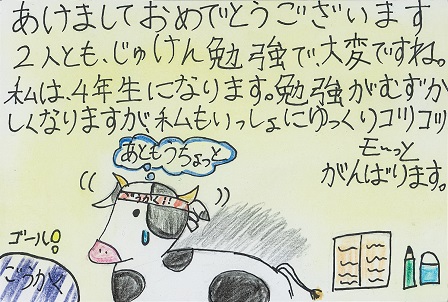 あけましておめでとうございます
2人とも、じゅけん勉強で、大変ですね。
私は、4年生になります。勉強がむずか
しくなりますが、私もいっしょにゆっくりコツコツ
モ〜っと
がんばります。
あともうちょっと
ごうかく!!
ゴール!
ごうかく